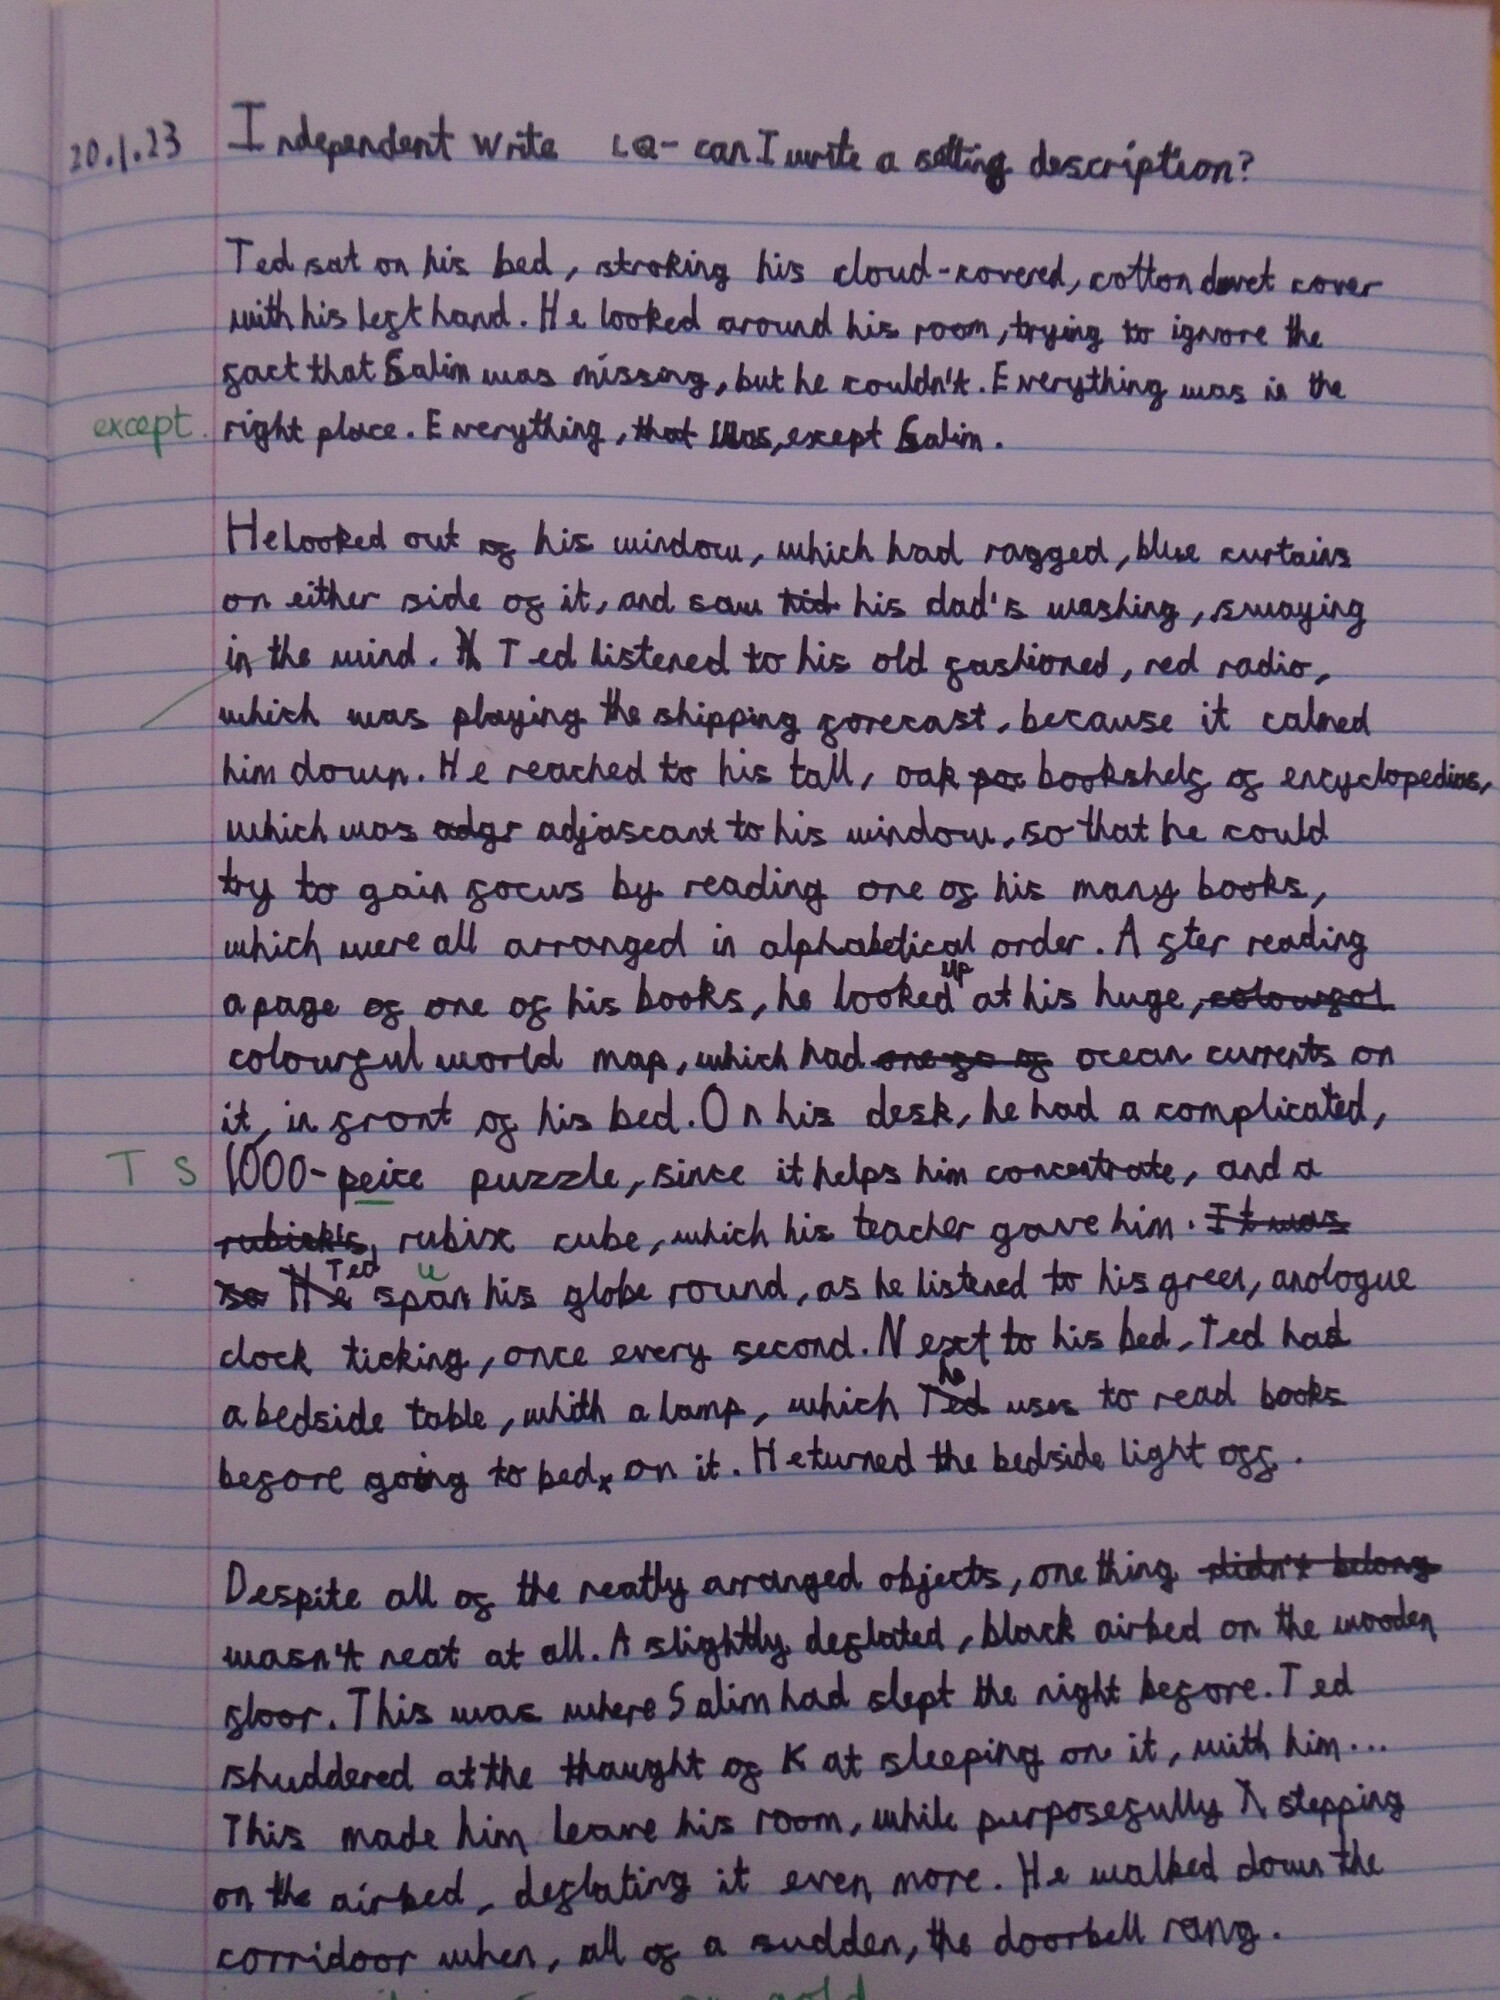 20.1.23 Independent write LQ- can I write a setting description?
Ted sat on his bed, stroking his cloud-covered, cotton duvet cover
with his left hand. He looked around his room, trying to ignore the
fact that Salim was missing, but he couldn't. Everything was in the
except right place. Everything, that was, except Salim.
He looked out of his window, which had ragged, blue curtains
on either side of it, and saw hid his dad's washing, swaying
in the wind. Ted listened to his old fashioned, red radio,
which was playing the shipping forecast, because it calmed
him down. He reached to his tall, oak bookshelf of encyclopedias,
which was adge adjascant to his window, so that he could
try to gain focus by reading one of his many books,
which were all arranged in alphabetical order. After reading
a page of one of his books, he looked up at his huge, colourfol
colourful world map, which had ocean currents on
it, in front of his bed. On his desk, he had a complicated,
T S 1000-peice puzzle, since it helps him concentrate, and a
rubick's, rubix cube, which his teacher gave him. It was
so He Ted span u his globe round, as he listened to his green, anologue
clock ticking, once every second. Next to his bed, Ted had
a bedside table, whith a lamp, which Ted he uses to read books
before going to bed, on it. He turned the bedside light off.
Despite all of the neatly arranged objects, one thing didn't belong
wasn't neat at all. A slightly deflated, black airbed on the wooden
floor. This was where Salim had slept the night before. Ted
shuddered at the thought of Kat sleeping on it, with him...
This made him leave his room, while purposefully stepping
on the airbed, deflating it even more. He walked down the
corridoor when, all of a sudden, the doorbell rang.